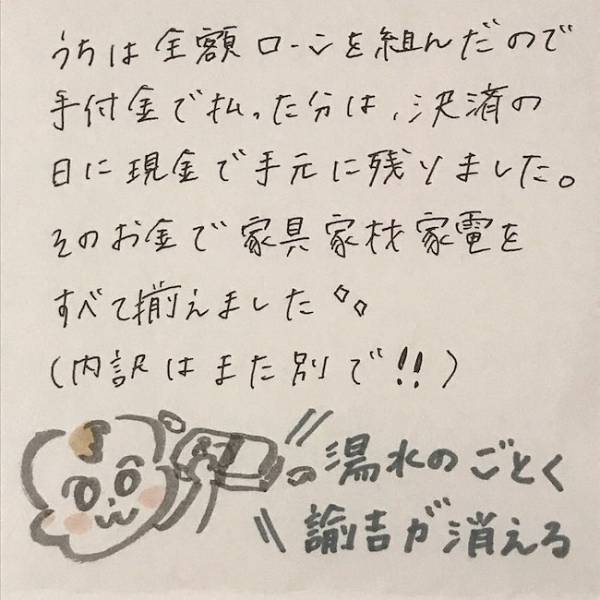 うちは全額ローンを組んだので
手付金で払った分は、決済の
日に現金で手元に残りました。
そのお金で家具家材家電を
すべて揃えました
(内訳はまた別で!!)
湯水のごとく
諭吉が消える